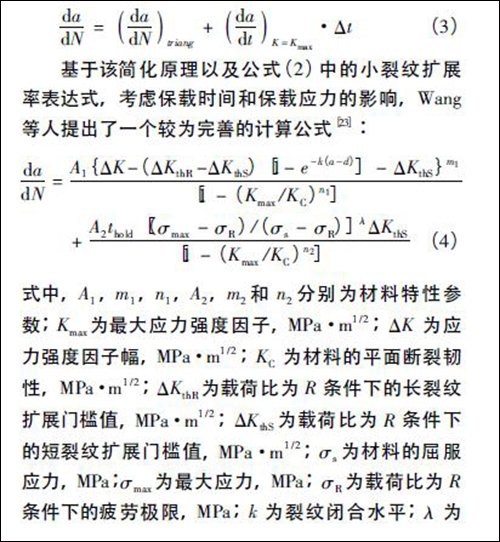 da/dN = (da/dN)triang + (da/dt)K=Kmax · Δt (3)
基于该简化原理以及公式(2)中的小裂纹扩展
率表达式，考虑保载时间和保载应力的影响，Wang
等人提出了一个较为完善的计算公式[23]：
da/dN = A1{ΔK-(ΔKthR-ΔKthS)〖1-e^-k(a-d)] - ΔKthS}^m1 / 〖1 - (Kmax/KC)^n1]
+ A2thold〖σmax - σR)/(σs - σR)]^λ ΔKthS / 〖1 - (Kmax/KC)^n2] (4)
式中，A1，m1，n1，A2，m2和 n2分别为材料特性参
数；Kmax为最大应力强度因子，MPa·m^1/2；ΔK 为应
力强度因子幅，MPa·m^1/2；KC 为材料的平面断裂韧
性，MPa·m^1/2；ΔKthR为载荷比为 R 条件下的长裂纹
扩展门槛值，MPa·m^1/2；ΔKthS为载荷比为 R 条件下
的短裂纹扩展门槛值，MPa·m^1/2；σs为材料的屈服
应力，MPa；σmax为最大应力，MPa；σR为载荷比为 R
条件下的疲劳极限，MPa；k 为裂纹闭合水平；λ 为